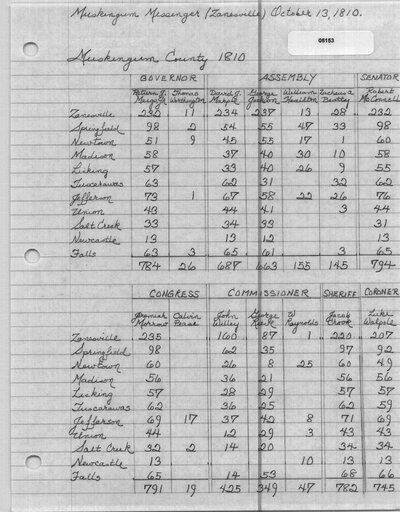 Muskingum Messenger (Zanesville) October 13, 1810.
05153
Muskingum County 1810
GOVERNOR ASSEMBLY SENATOR
Return J. Meigs Jr. Thomas Worthington David J. Marple George Jackson William Hamilton Zacheus A. Beatty Robert McConnell
Zanesville 230 11 234 237 13 28 232
Springfield 98 2 54 55 47 33 98
Newtown 51 9 45 55 17 1 60
Madison 58 37 40 30 10 58
Licking 57 33 40 26 9 55
Tuscarawas 63 62 31 32 62
Jefferson 73 1 67 58 22 26 76
Union 43 44 41 3 44
Salt Creek 33 34 33 31
Newcastle 13 13 12 13
Falls 63 3 65 61 3 65
784 26 687 663 155 145 794
CONGRESS COMMISSIONER SHERIFF CORONER
Jeremiah Morrow Calvin Pease John Willey George Reeve W Reynolds Jacob Crook Luke Walpole
Zanesville 235 160 87 1 220 207
Springfield 98 62 35 97 92
Newtown 60 26 8 25 60 49
Madison 56 36 21 56 56
Licking 57 28 29 57 57
Tuscarawas 62 36 25 62 59
Jefferson 69 17 37 42 8 71 69
Union 44 12 29 3 43 43
Salt Creek 32 2 14 20 34 34
Newcastle 13 10 13 13
Falls 65 14 53 68 66
791 19 425 349 47 782 745